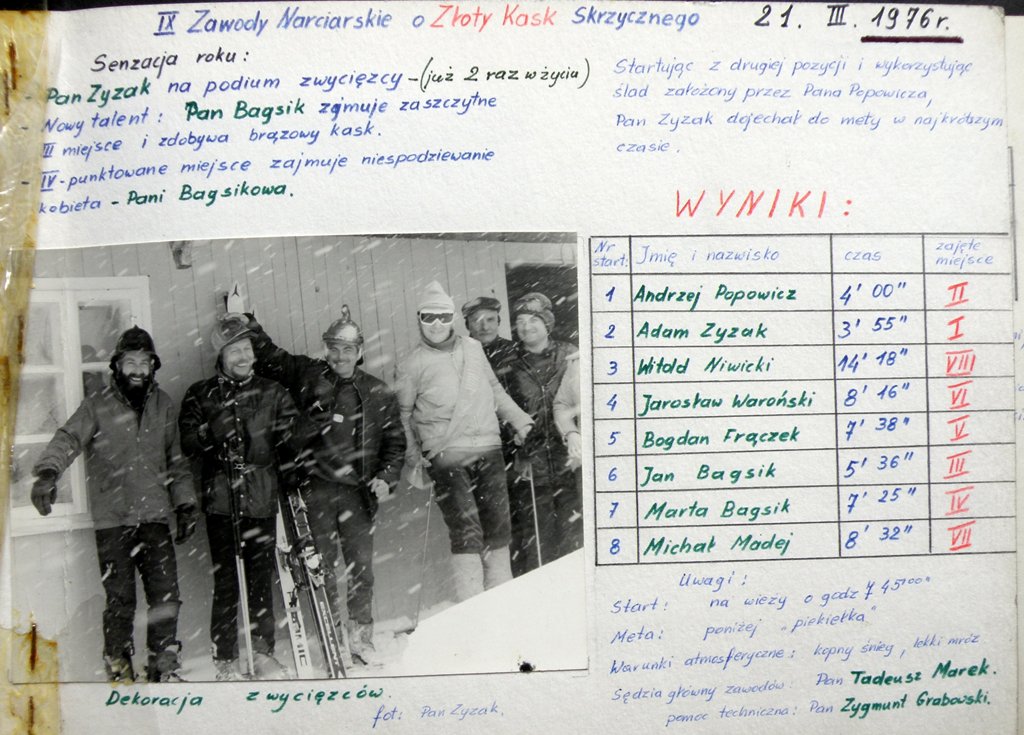 IX Zawody Narciarskie o Złoty Kask Skrzycznego 21. III. 1976 r.
Senzacja roku:
Pan Zyzak na podium zwycięzcy - (już 2 raz w życiu)
- Nowy talent: Pan Bagsik zajmuje zaszczytne
III miejsce i zdobywa brązowy kask.
- IV - punktowane miejsce zajmuje niespodziewanie
kobieta - Pani Bagsikowa.
Startując z drugiej pozycji i wykorzystując
ślad założony przez Pana Popowicza,
Pan Zyzak dojechał do mety w najkrótszym
czasie.
WYNIKI:
Nr start: Imię i nazwisko czas zajęte miejsce
1 Andrzej Popowicz 4' 00" II
2 Adam Zyzak 3' 55" I
3 Witold Niwicki 14' 18" VIII
4 Jarosław Waroński 8' 16" VI
5 Bogdan Frączek 7' 38" V
6 Jan Bagsik 5' 36" III
7 Marta Bagsik 7' 25" IV
8 Michał Madej 8' 32" VII
Uwagi:
Start: na wieży o godz 7 45'00"
Meta: poniżej „piekiełka"
Warunki atmosferyczne: kopny śnieg, lekki mróz
Sędzia główny zawodów: Pan Tadeusz Marek.
pomoc techniczna: Pan Zygmunt Grabowski.
Dekoracja zwycięzców.
fot: Pan Zyzak.